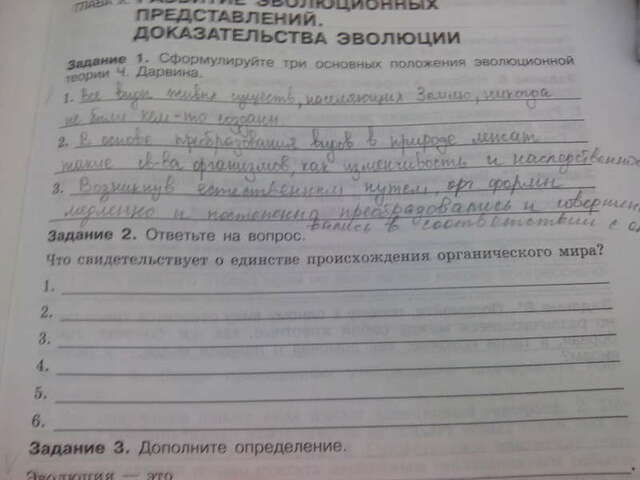 ГЛАВА
РАЗВИТИЕ ЭВОЛЮЦИОННЫХ
ПРЕДСТАВЛЕНИЙ.
ДОКАЗАТЕЛЬСТВА ЭВОЛЮЦИИ
Задание 1. Сформулируйте три основных положения эволюционной
теории Ч. Дарвина.
1. Все виды живых существ, населяющих Землю, никогда
не были кем-то созданы.
2. В основе преобразования видов в природе лежат
такие св-ва организмов, как изменчивость и наследственно
3. Возникнув естественным путем, орг формы
медленно и постепенно преобразовались и соверше
вались в соответствии с о
Задание 2. Ответьте на вопрос.
Что свидетельствует о единстве происхождения органического мира?
1.
2.
3.
4.
5.
6.
Задание 3. Дополните определение.
Эволюция — это